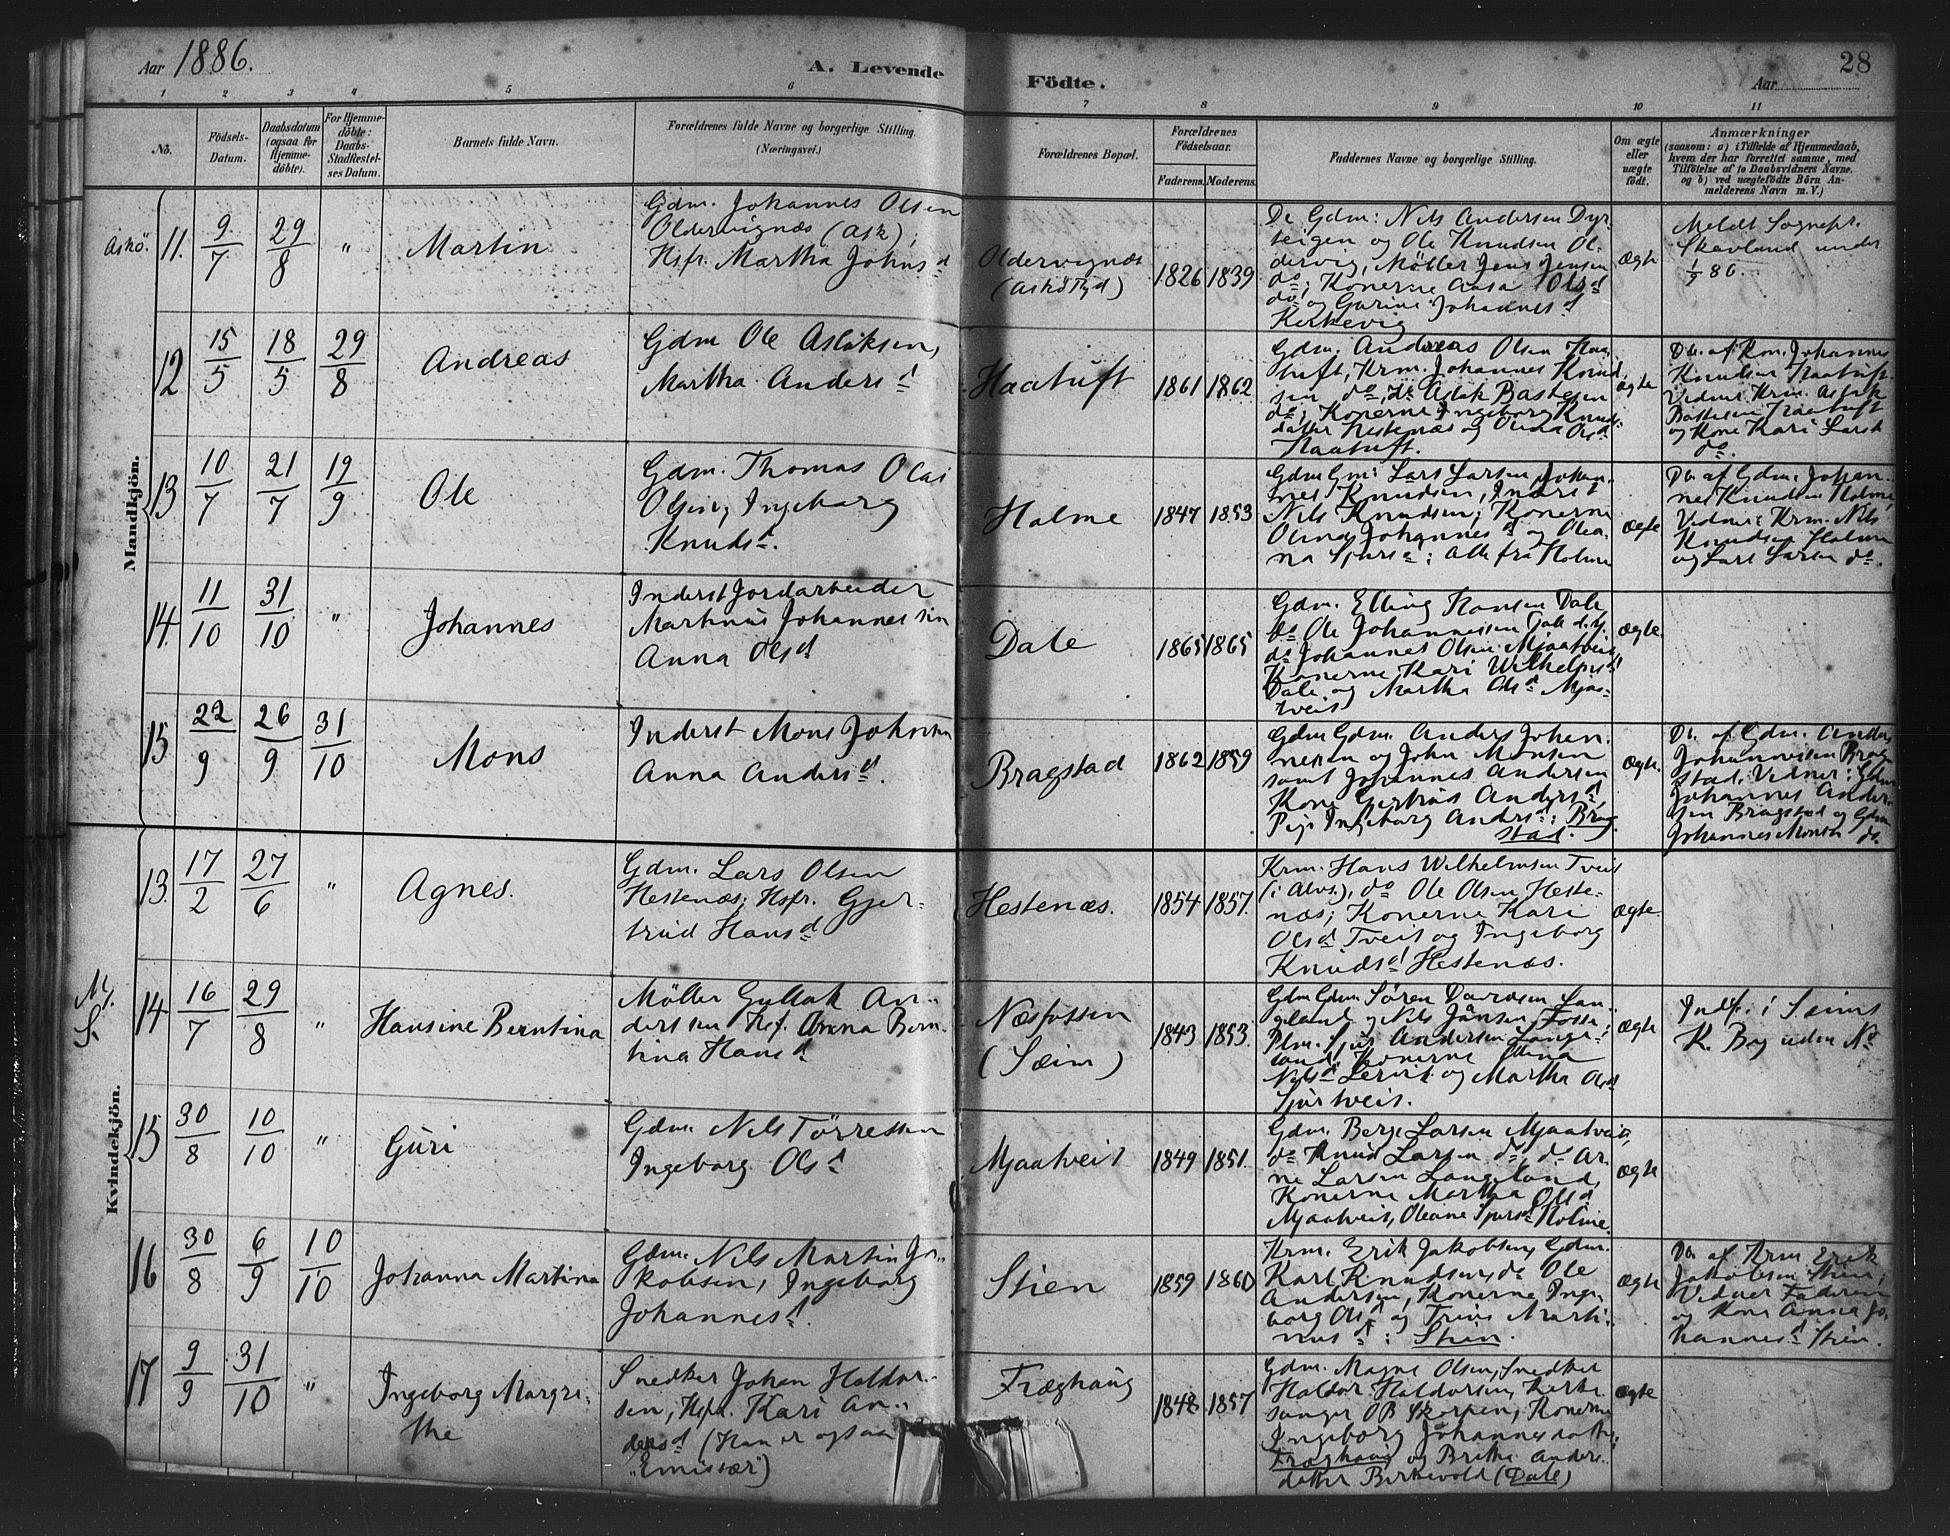 Aar 1886.
A. Levende Födte.
Aar
28
1 2 3 4 5 6 7 8 9 10 11
No.
Födsels-Datum.
Daabsdatum (ogsaa for Hjemme-döbte).
For Hjemme-döbte: Daabs-Stadfæstel-ses Datum.
Barnets fulde Navn.
Forældrenes fulde Navne og borgerlige Stilling. (Næringsvei.)
Forældrenes Bopæl.
Forældrenes Födselsaar.
Faderens. Moderens.
Faddernes Navne og borgerlige Stilling.
Om ægte eller uægte födt.
Anmærkninger
(saasom: a) i Tilfælde af Hjemmedaab,
hvem der har forrettet samme, med
Tilföielse af to Daabsvidners Navne.
og b) ved uægtefödte Börn An-
melderens Navn m. V.)
Mandkjön.
Askö. 11. 9/7 29/8 "
Martin
Gdm. Johannes Olsen
Oldervignæs (Ask);
Hsfr. Martha Johnsd
Oldervignæs
1826 1839
De Gdm: Nils Andersen Dyr-
teigen og Ole Knudsen Ol-
dervig, Møller Jens Jensen
do; Konerne Aasa Olsd
do og Gurine Johannesd
Kirkevig
Ægte
Meldt Sognepr.
Skavland under
1/9 86.
12 15/5 18/5 29/8
Andreas
Gdm Ole Aslaksen,
Martha Andersd
Haatuft
1861 1862
Gdm. Andreas Olsen Haa-
tuft, Krm. Johannes Knud-
sen do, do Aslak Bastesen
do; Konerne Ingeborg Knuds-
datter Hestenæs og Olina Olsd
Haatuft.
ægte
Db. af Krm. Johannes
Knudsen Haatuft.
Vidner Krm. Aslak
Bastesen Haatuft
og Kone Kari Larsd
do.
13 10/7 21/7 19/9
Ole
Gdm. Thomas Olai
Olsen, Ingeborg
Knudsd.
Holme
1847 1853
Gdm Gm: Lars Larsen, Johan-
nes Knudsen, Inderst
Nils Knudsen; Konerne
Olina Johannesd og Olea-
na Sjursd: alle fra Holme
ægte
Db. af Gdm. Johan-
nes Knudsen Holme,
Vidner: Krm. Nils
Knudsen Holme
og Lars Larsen do.
14. 11/10 31/10 "
Johannes
Inderst Jordarbeider
Martinus Johannessen
Anna Olsd
Dale
1865 1865
Gdm. Elling Hansen Dale,
do Ole Johannessen Dale
do Johannes Olsen Mjaatveit,
Konerne Kari Wilhelmsd
Dale og Martha Olsd Mjaa-
tveit
ægte.
15 22/9 26/9 31/10
Mons
Inderst Mons Johnsen
Anna Andersd.
Bragstad
1862 1859
Gdm Gdm. Anders Johan-
nesen og John Monsen
samt Johannes Andersen
Kone Gertrud Andersd
Pige Ingeborg Andersd: Brag-
stad.
ægte.
Db. af Gdm. Anders
Johannessen Brag-
stad. Vidner: Gdm
Johannes Ander-
sen Bragstad og Gdm
Johannes Monsen do.
Kvindekjön.
13. 17/2 27/6 "
Agnes.
Gdm. Lars Olsen
Hestenæs; Hsfr. Gjer-
trud Hansd
Hestenæs.
1854 1857.
Krm. Hans Wilhelmsen Tveit
(i Alvs.), do Ole Olsen Heste-
næs; Konerne Kari
Olsd Tveit og Ingeborg
Knudsd Hestenæs.
ægte.
14 16/7 29/8 "
Hansine Berntina
Møller Gullak An-
dersen Hsf. Anna Bern-
tina Hansd
Næsfossen
(Sæim)
1843 1853.
Gdm Gdm Søren Davidsen Lan-
geland og Nils Jansen Fosse;
Plm. Sjur Andersen Lange-
land; Konerne Stina
Nilsd Lervik og Martha Olsd
Sjurtveit.
ægte
Indf. i Seims
K. Bog uden No
15 30/8 10/10 "
Guri
Gdm. Nils Tørressen
Ingeborg Olsd
Mjaatveit
1849 1851.
Gdm. Berge Larsen Mjaatveit,
do Knud Larsen do; do Ar-
ne Larsen Langeland,
Konerne Martha Olsd
Mjaatveit, Oleane Sjursd Holme
ægte
16 30/8 6/9 10/10
Johanna Martina
Gdm. Nils Martin Ja-
kobsen, Ingeborg
Johannesd.
Stien
1859 1860
Krm. Erik Jakobsen, Gdm.
Karl Knudsen, do Ole
Andersen, Konerne Inge-
borg Olsd og Trine Marti-
nusd: Stien.
ægte
Db. af Krm Erik
Jakobsen Stien,
Vidner Faderen
og Kone Anna Jo-
hannesd Stien.
17 9/9 31/10 "
Ingeborg Margre-
the
Snedker Johan Haldor-
sen, Hsfr. Kari An-
dersd (Han er ogsaa
"Emissær")
Fræghaug
1848 1857
Gdm. Magne Olsen, Snedker
Haldor Haldorsen, Kirke-
sanger OB Skorpen, Konerne
Ingeborg Johannesdatter
Fræghaug og Britha Anders-
datter Birkevold (Dale)
ægte